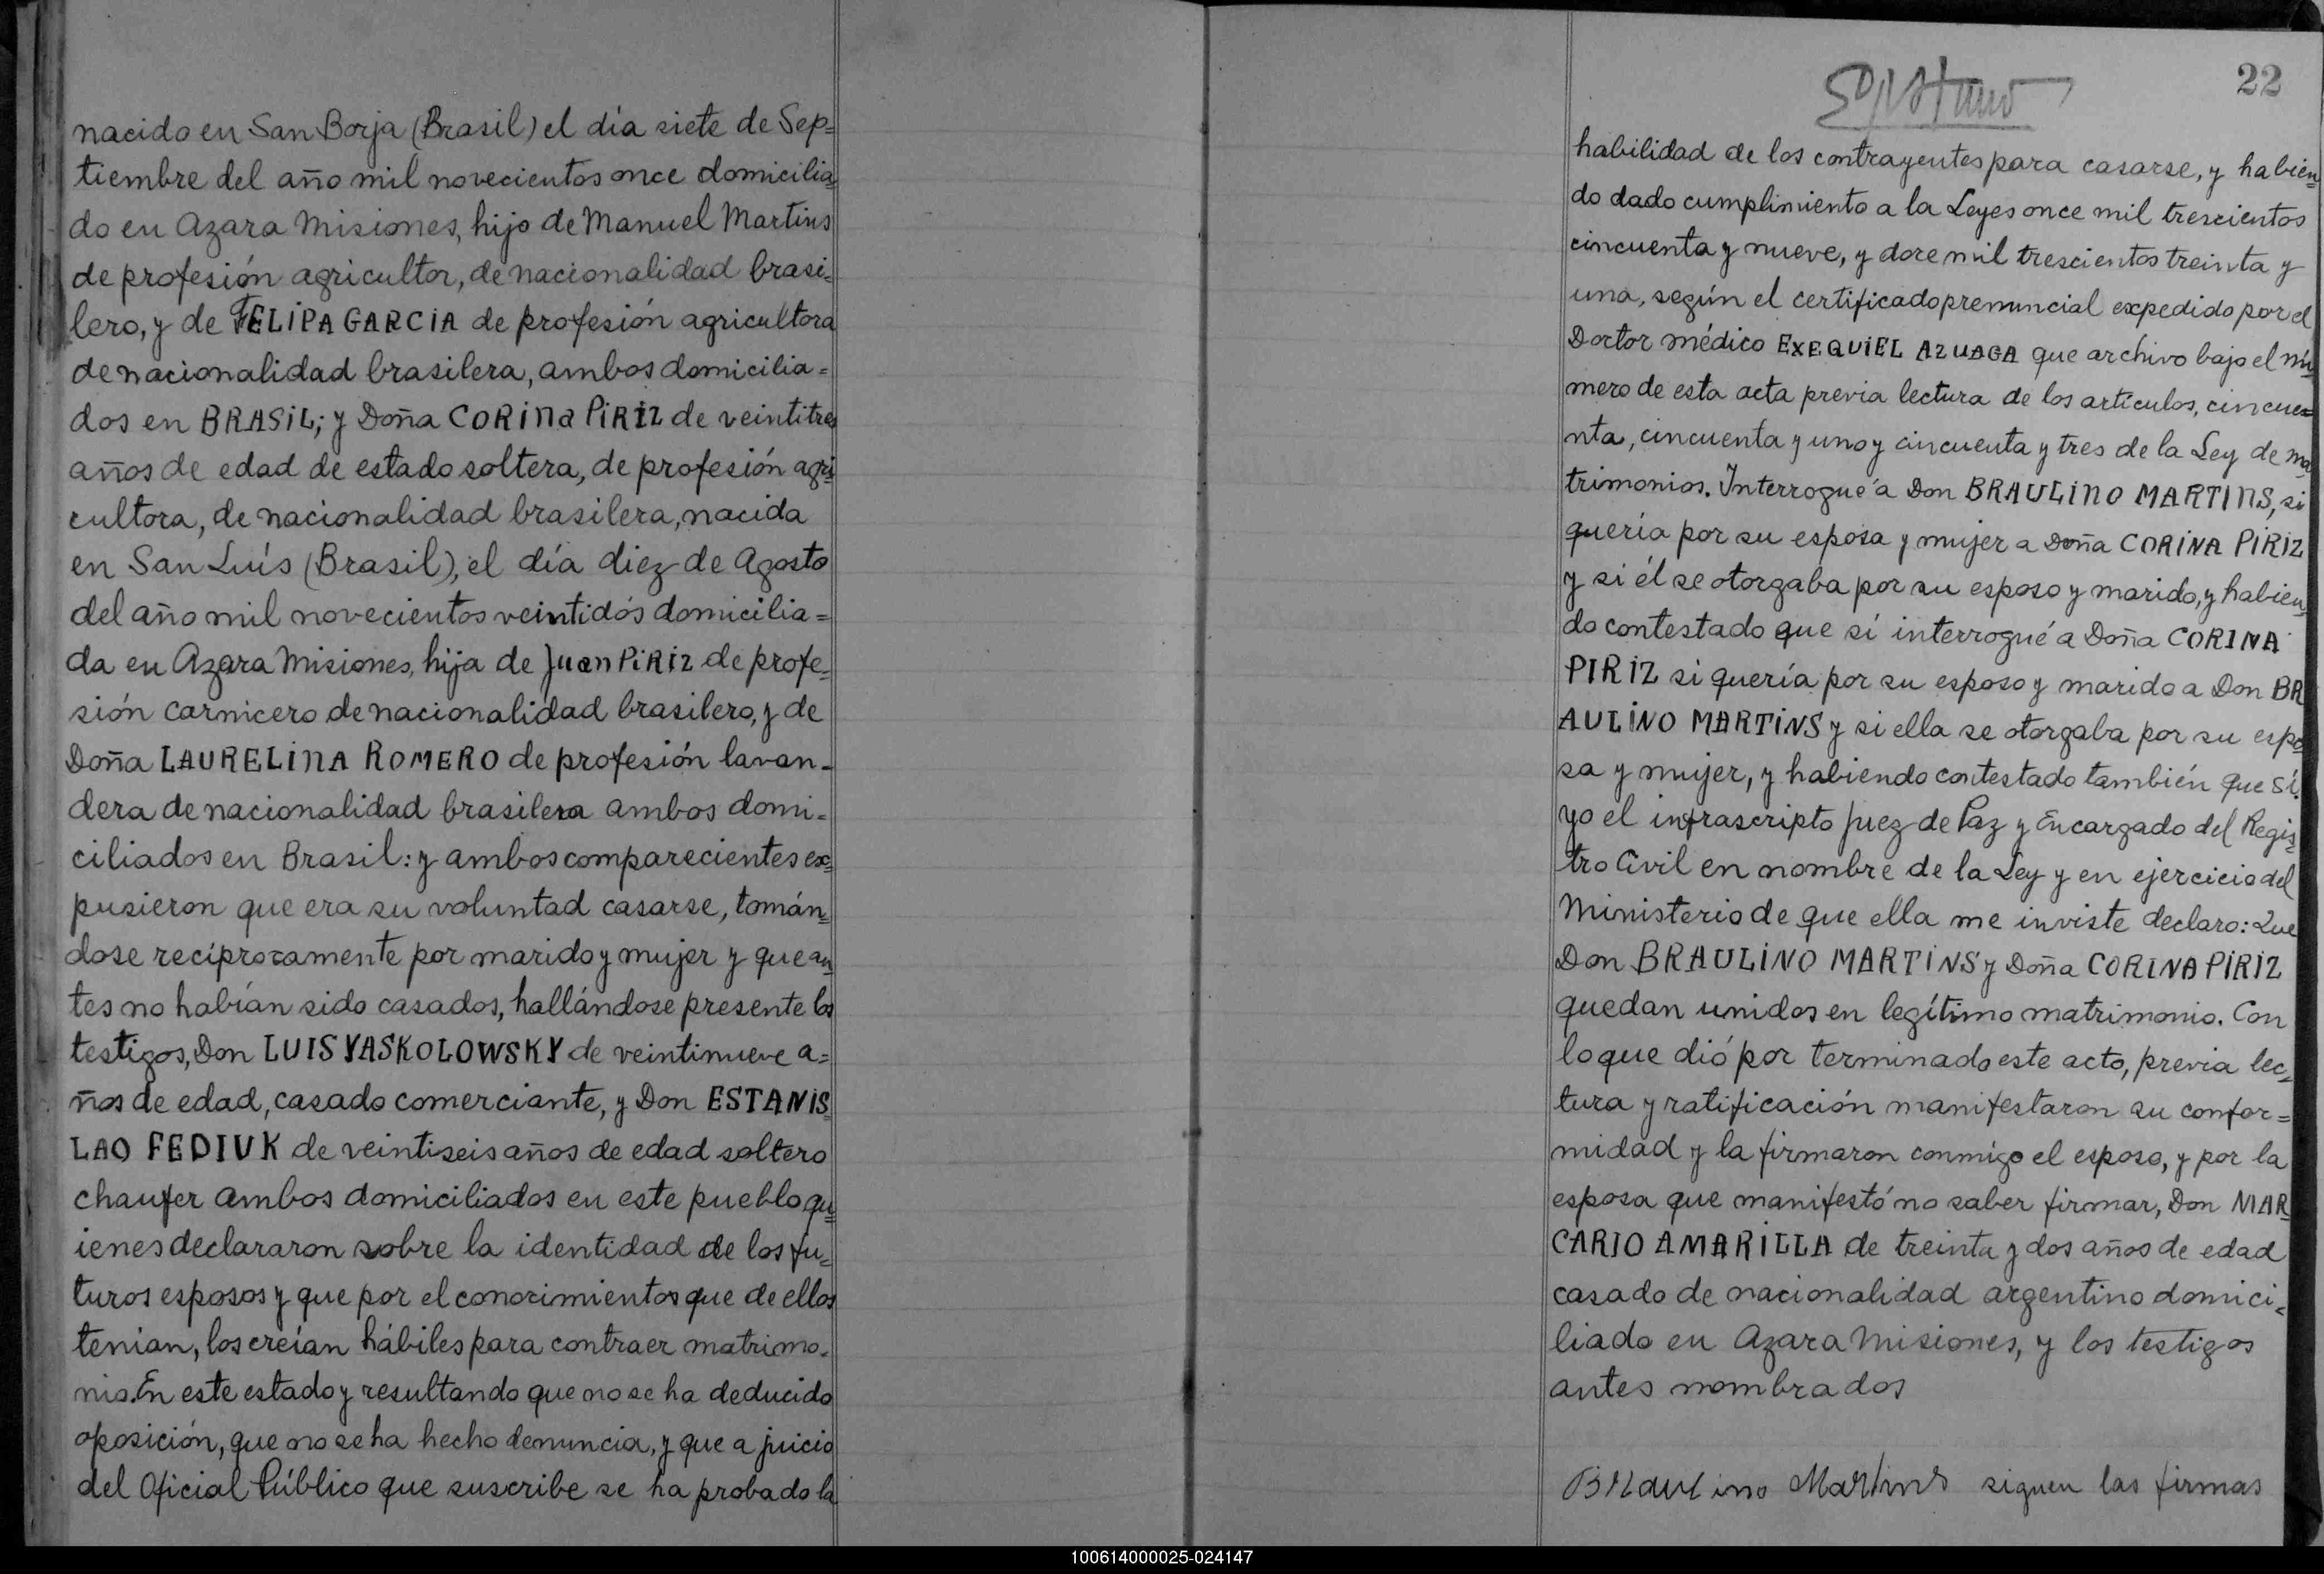 nacido en San Borja (Brasil) el día siete de Sep=
tiembre del año mil novecientos once domicilia=
do en Azara Misiones, hijo de Manuel Martins
de profesión agricultor, de nacionalidad brasi=
lero, y de FELIPA GARCIA de profesión agricultora
de nacionalidad brasilera, ambos domicilia=
dos en BRASIL; y Doña CORINA PIRIZ de veintitres
años de edad de estado soltera, de profesión agri=
cultora, de nacionalidad brasilera, nacida
en San Luís (Brasil), el día diez de Agosto
del año mil novecientos veintidós domicilia=
da en Azara Misiones, hija de Juan PIRIZ de profe=
sión carnicero de nacionalidad brasilero, y de
Doña LAURELINA ROMERO de profesión lavan=
dera de nacionalidad brasilera ambos domi=
ciliados en Brasil: y ambos comparecientes ex=
pusieron que era su voluntad casarse, tomán=
dose recíprocamente por marido y mujer y que an=
tes no habían sido casados, hallándose presente los
testigos, Don LUIS YASKOLOWSKY de veintinueve a=
ños de edad, casado comerciante, y Don ESTANIS=
LAO FEDIUK de veintiseis años de edad soltero
chaufer ambos domiciliados en este pueblo qu=
ienes declararon sobre la identidad de los fu=
turos esposos y que por el conocimientos que de ellos
tenían, los creían hábiles para contraer matrimo=
nio. En este estado y resultando que no se ha deducido
oposición, que no se ha hecho denuncia, y que a juicio
del Oficial Público que suscribe se ha probado la
22
habilidad de los contrayentes para casarse, y habien=
do dado cumplimiento a la Leyes once mil trescientos
cincuenta y nueve, y doce mil trescientos treinta y
una, según el certificado prenuncial expedido por el
Doctor médico EXEQUIEL AZUAGA que archivo bajo el nú=
mero de esta acta previa lectura de los artículos, cincue=
nta, cincuenta y uno y cincuenta y tres de la Ley de ma
trimonios. Interrogué a Don BRAULINO MARTINS, si
quería por su esposa y mujer a Doña CORINA PIRIZ
y si él se otorgaba por su esposo y marido, y habien=
do contestado que sí interrogué a Doña CORINA
PIRIZ si quería por su esposo y marido a Don BR
AULINO MARTINS y si ella se otorgaba por su espo
sa y mujer, y habiendo contestado también que sí.
yo el infrascripto Juez de Paz y Encargado del Regis=
tro Civil en nombre de la Ley y en ejercicio del
Ministerio de que ella me inviste declaro: Que
Don BRAULINO MARTINS y Doña CORINA PIRIZ
quedan unidos en legítimo matrimonio. Con
lo que dió por terminado este acto, previa lec=
tura y ratificación manifestaron su confor=
midad y la firmaron conmigo el esposo, y por la
esposa que manifestó no saber firmar, Don MAR=
CARIO AMARILLA de treinta y dos años de edad
casado de nacionalidad argentino domici=
liado en Azara Misiones, y los testigos
antes nombrados
Braulino Martins siguen las firmas
100614000025-024147